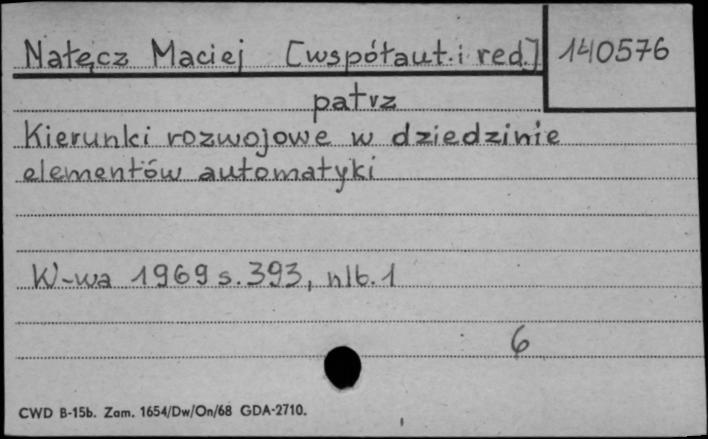 Nałęcz Maciej [współaut. i red.] 140576
patrz
Kierunki rozwojowe w dziedzinie
elementów automatyki
W-wa 1969 s. 393, nlb. 1
6
CWD B-15b. Zam. 1654/Dw/On/68 GDA-2710.